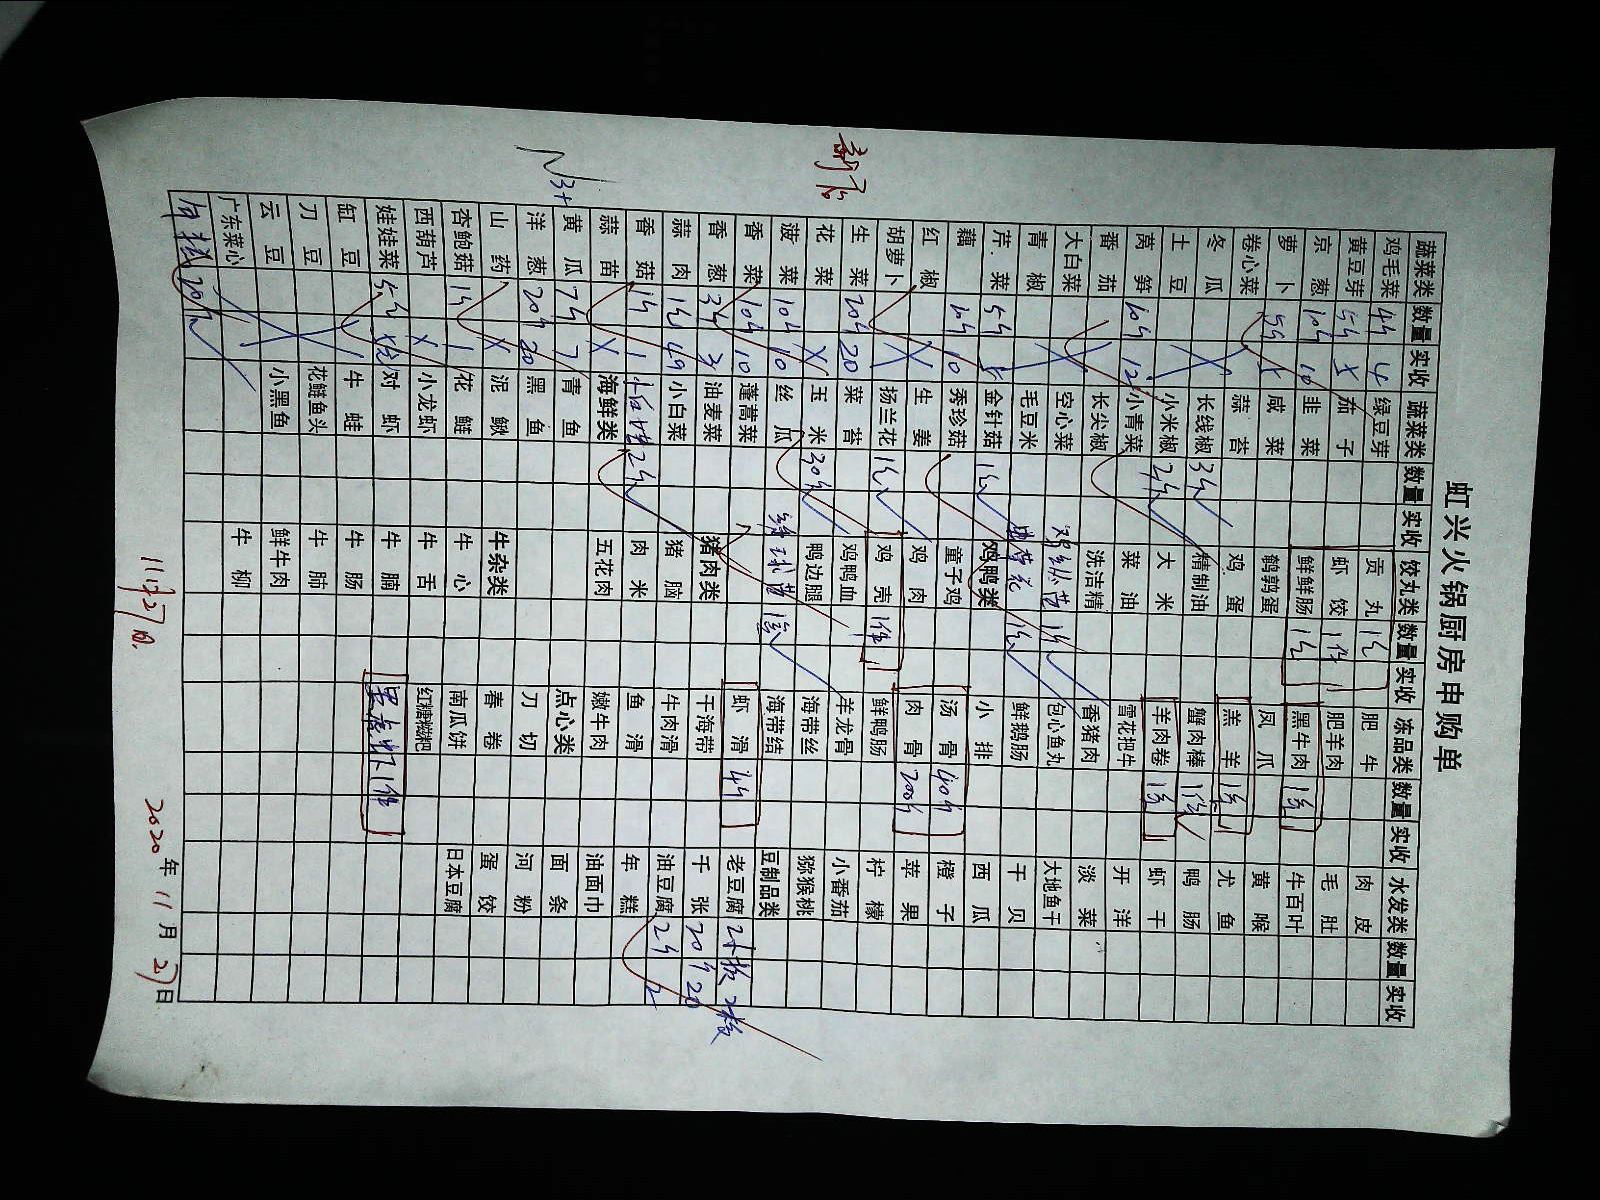 虹兴火锅厨房申购单
新店
蔬菜类 数量 实收 蔬菜类 数量 实收 饺丸类 数量 实收 冻品类 数量 实收 水发类 数量 实收
鸡毛菜 4斤 4 绿豆芽 贡丸 1包 肥牛 肉皮
黄豆芽 5斤 5 茄子 虾饺 1件 肥羊肉 毛肚
京葱 10斤 10 韭菜 鲜鲜肠 1包 黑牛肉 1包 牛百叶
萝卜 5斤 5 咸菜 鹌鹑蛋 凤爪 黄喉
卷心菜 蒜苔 鸡蛋 羔羊 1包 尤鱼
冬瓜 长线椒 3斤 精制油 蟹肉棒 1件 鸭肠
土豆 小米椒 2斤 大米 羊肉卷 1包 虾干
莴笋 10斤 12 小青菜 菜油 雪花把牛 开洋
番茄 长尖椒 洗洁精 香猪肉 淡菜
大白菜 空心菜 包心鱼丸 大地鱼干
青椒 毛豆米 鲜鹅肠 干贝
芹菜 5斤 5 金针菇 1包 鸡鸭类 小排 西瓜
藕 10斤 10 秀珍菇 童子鸡 汤骨 40斤 橙子
红椒 生姜 鸡肉 肉骨 200斤 苹果
胡萝卜 扬兰花 1包 鸡壳 1件 鲜鸭肠 柠檬
生菜 20斤 20 菜苔 鸡鸭血 羊龙骨 小番茄
花菜 玉米 30斤 鸭边腿 海带丝 猕猴桃
菠菜 10斤 10 丝瓜 海带结 豆制品类
香菜 10斤 10 蓬蒿菜 虾滑 4斤 老豆腐 2板 2板
香葱 3斤 3 油麦菜 猪肉类 干海带 千张 20斤 20
蒜肉 小白菜 猪脑 牛肉滑 油豆腐 2斤 2
香菇 1斤 1 肉米 鱼滑 年糕
蒜苗 海鲜类 五花肉 嫩牛肉 油面巾
黄瓜 7斤 7 青鱼 点心类 面条
洋葱 20斤 20 黑鱼 刀切 河粉
山药 泥鳅 牛杂类 春卷 蛋饺
杏鲍菇 1斤 1 花鲢 牛心 南瓜饼 日本豆腐
西葫芦 小龙虾 牛舌 红糖糍粑
娃娃菜 对虾 牛腩 1件
缸豆 牛蛙 牛肠
刀豆 花鲢鱼头 牛肺
云豆 小黑鱼 鲜牛肉
广东菜心 牛柳
20斤
11月27日.
2020年11月27日